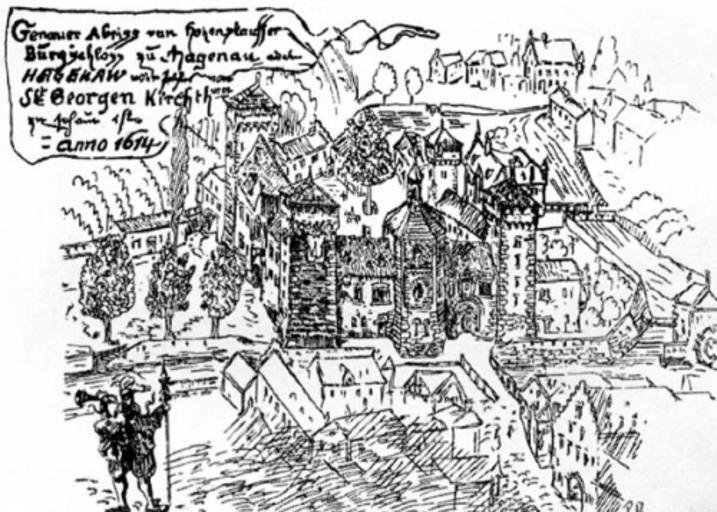 Genauer Abriss van Hohenstauffer
Burgschloss zu Hagenau
HAGENAW von
Skt Georgen Kirchth
zu schau ist
= anno 1614